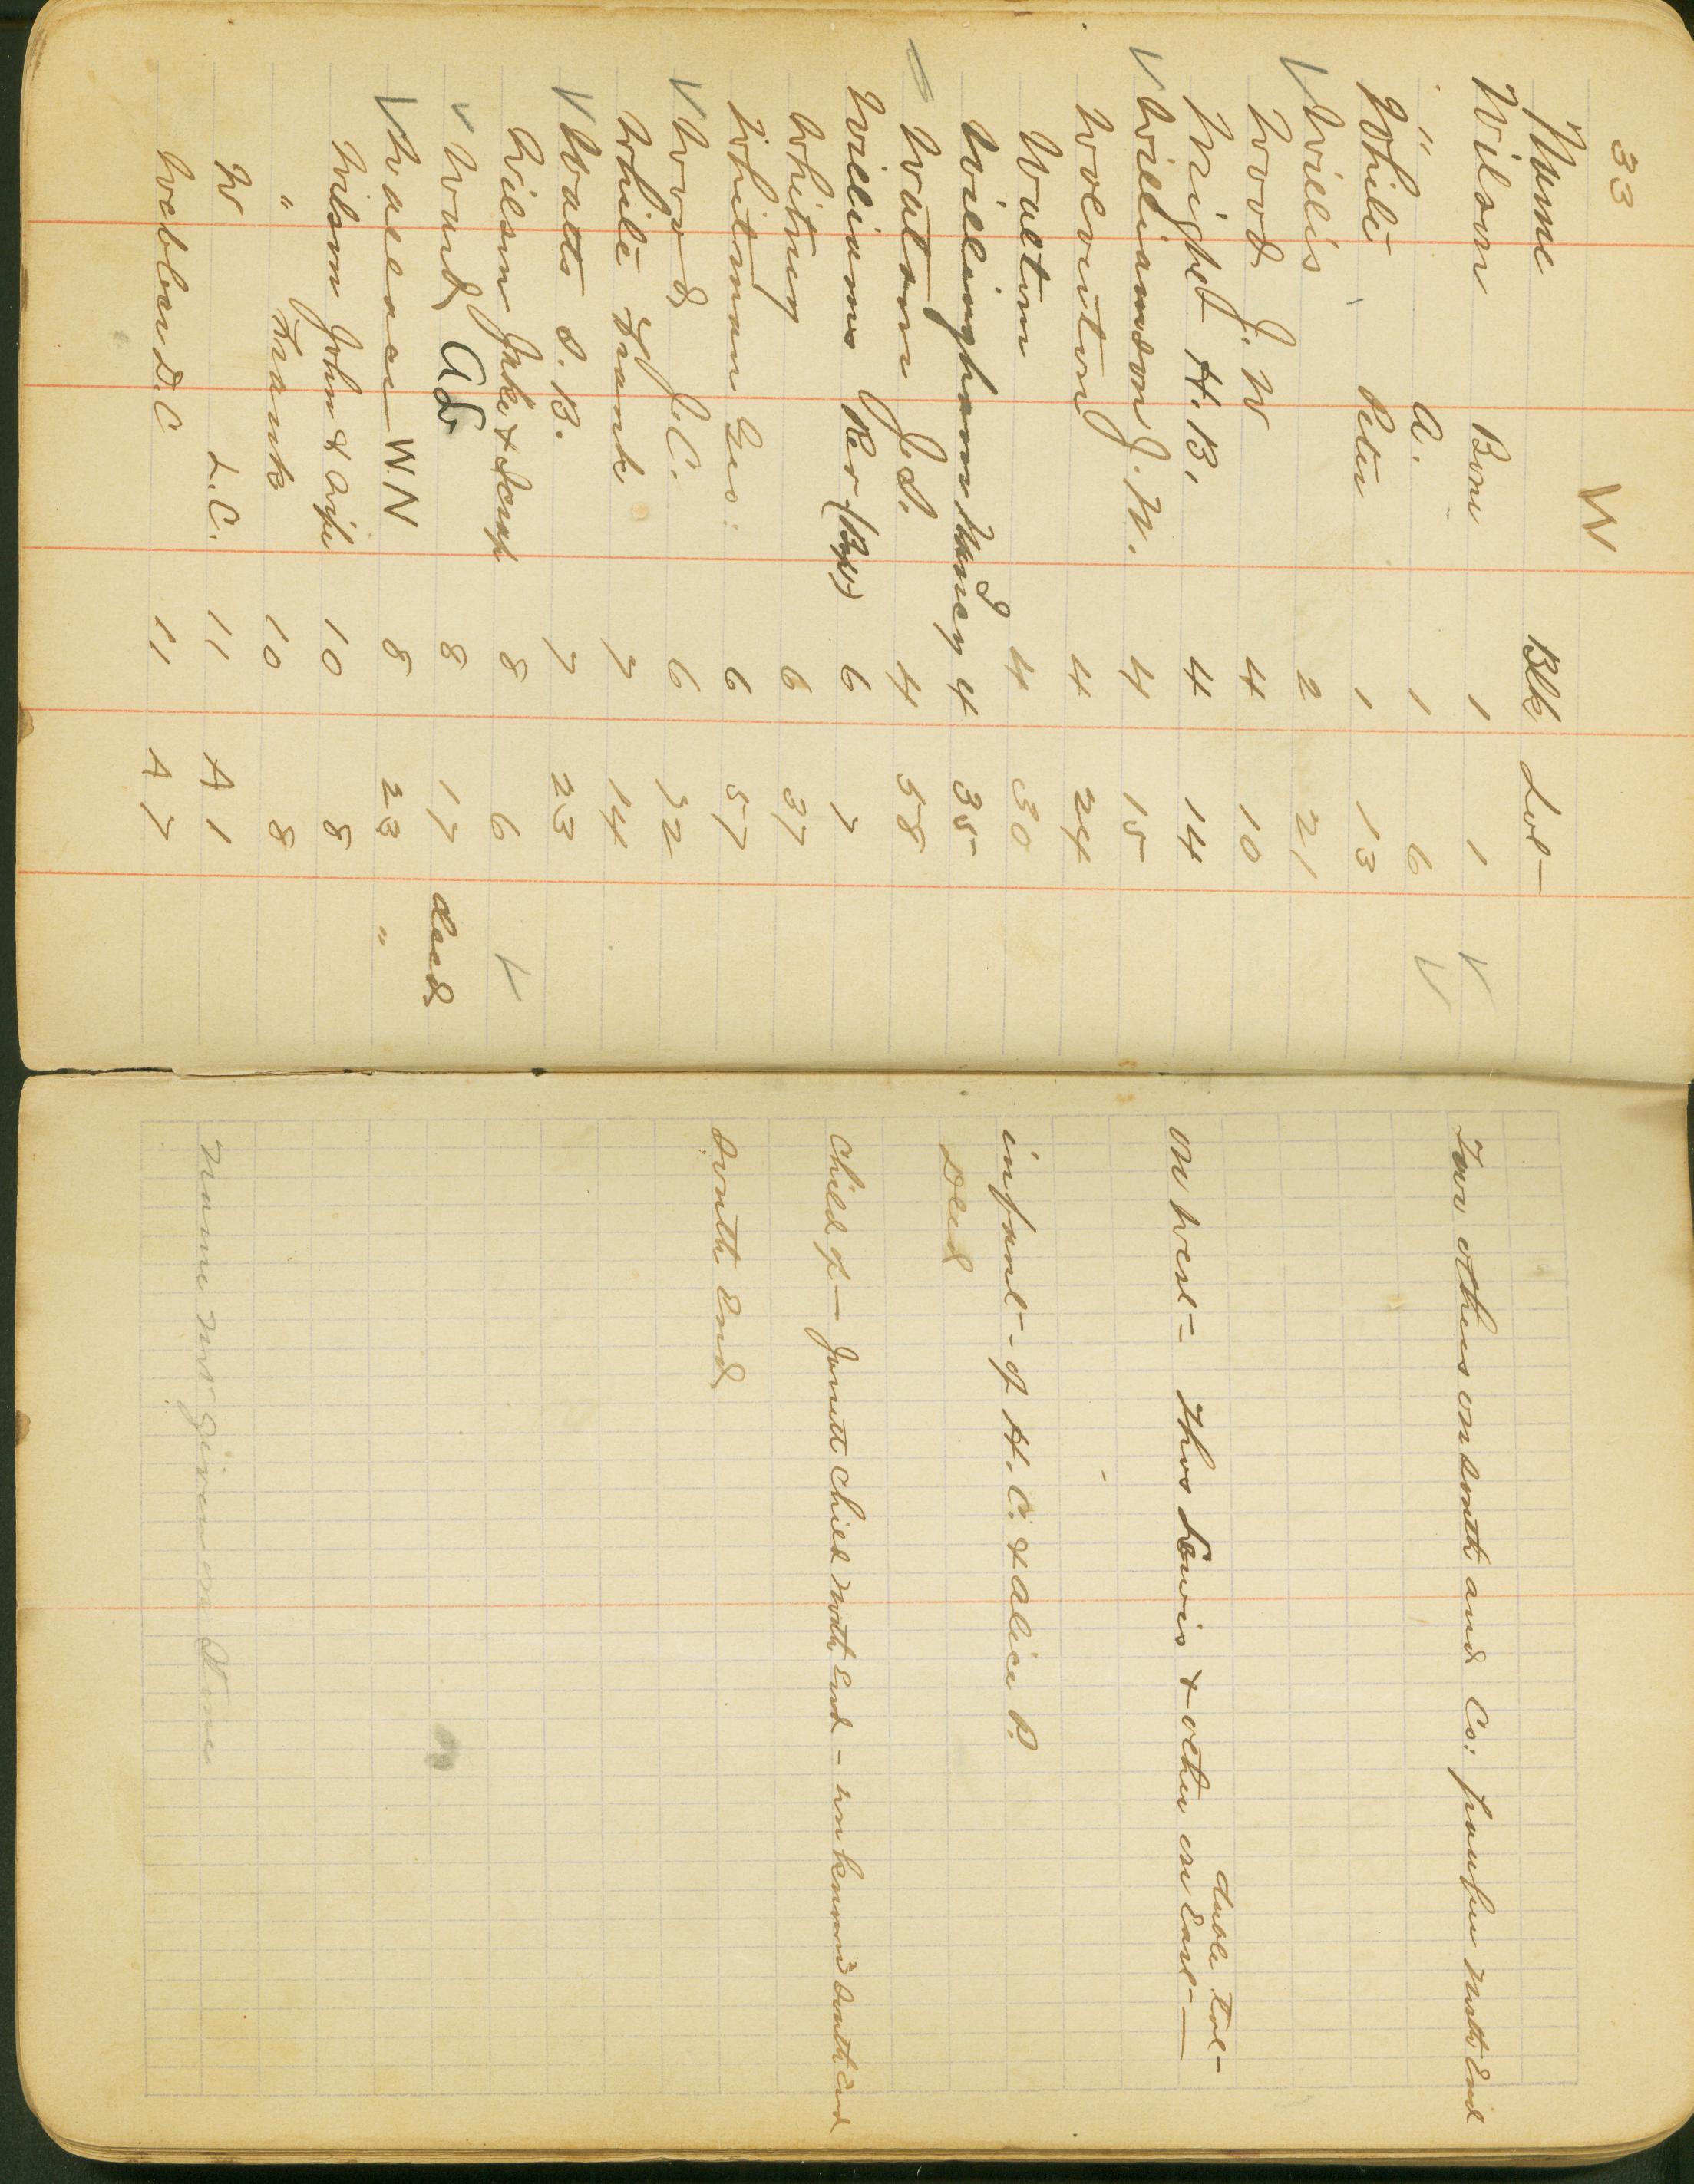 33
W
Name Blk Lot
Wilson Bone 1 1 V
" A. 1 6 V
White Peter 1 13
V Willis 2 21
Wood J. W 4 10
Wright H. B. 4 14
V Williamson J. W. 4 15
Wolverton 4 24
Walton 4 30
Willingham Nancy 4 35
Watson J. S. 4 58
Williams Rev (Bpt) 6 7
Whitney 6 37
Whitman Geo: 6 57
V Wood J. C. 6 72
White Frank 7 14
V Watts S. B. 7 23
Wilson Jake & 8 6 V
V Ward 8 17 deed
V Wallace W. N 8 23 "
Wilson John & wife 10 8
" Frank 10 8
W L. C. 11 A 1
Webber D. C 11 A 7
Two others on south and Co: pauper North End
Table Lot
on West - Thos Lewis & other on East
infant of H. C. & Alice P.
Deed
Child of - Child North End - unknown South End
South End
Name not given on Stone